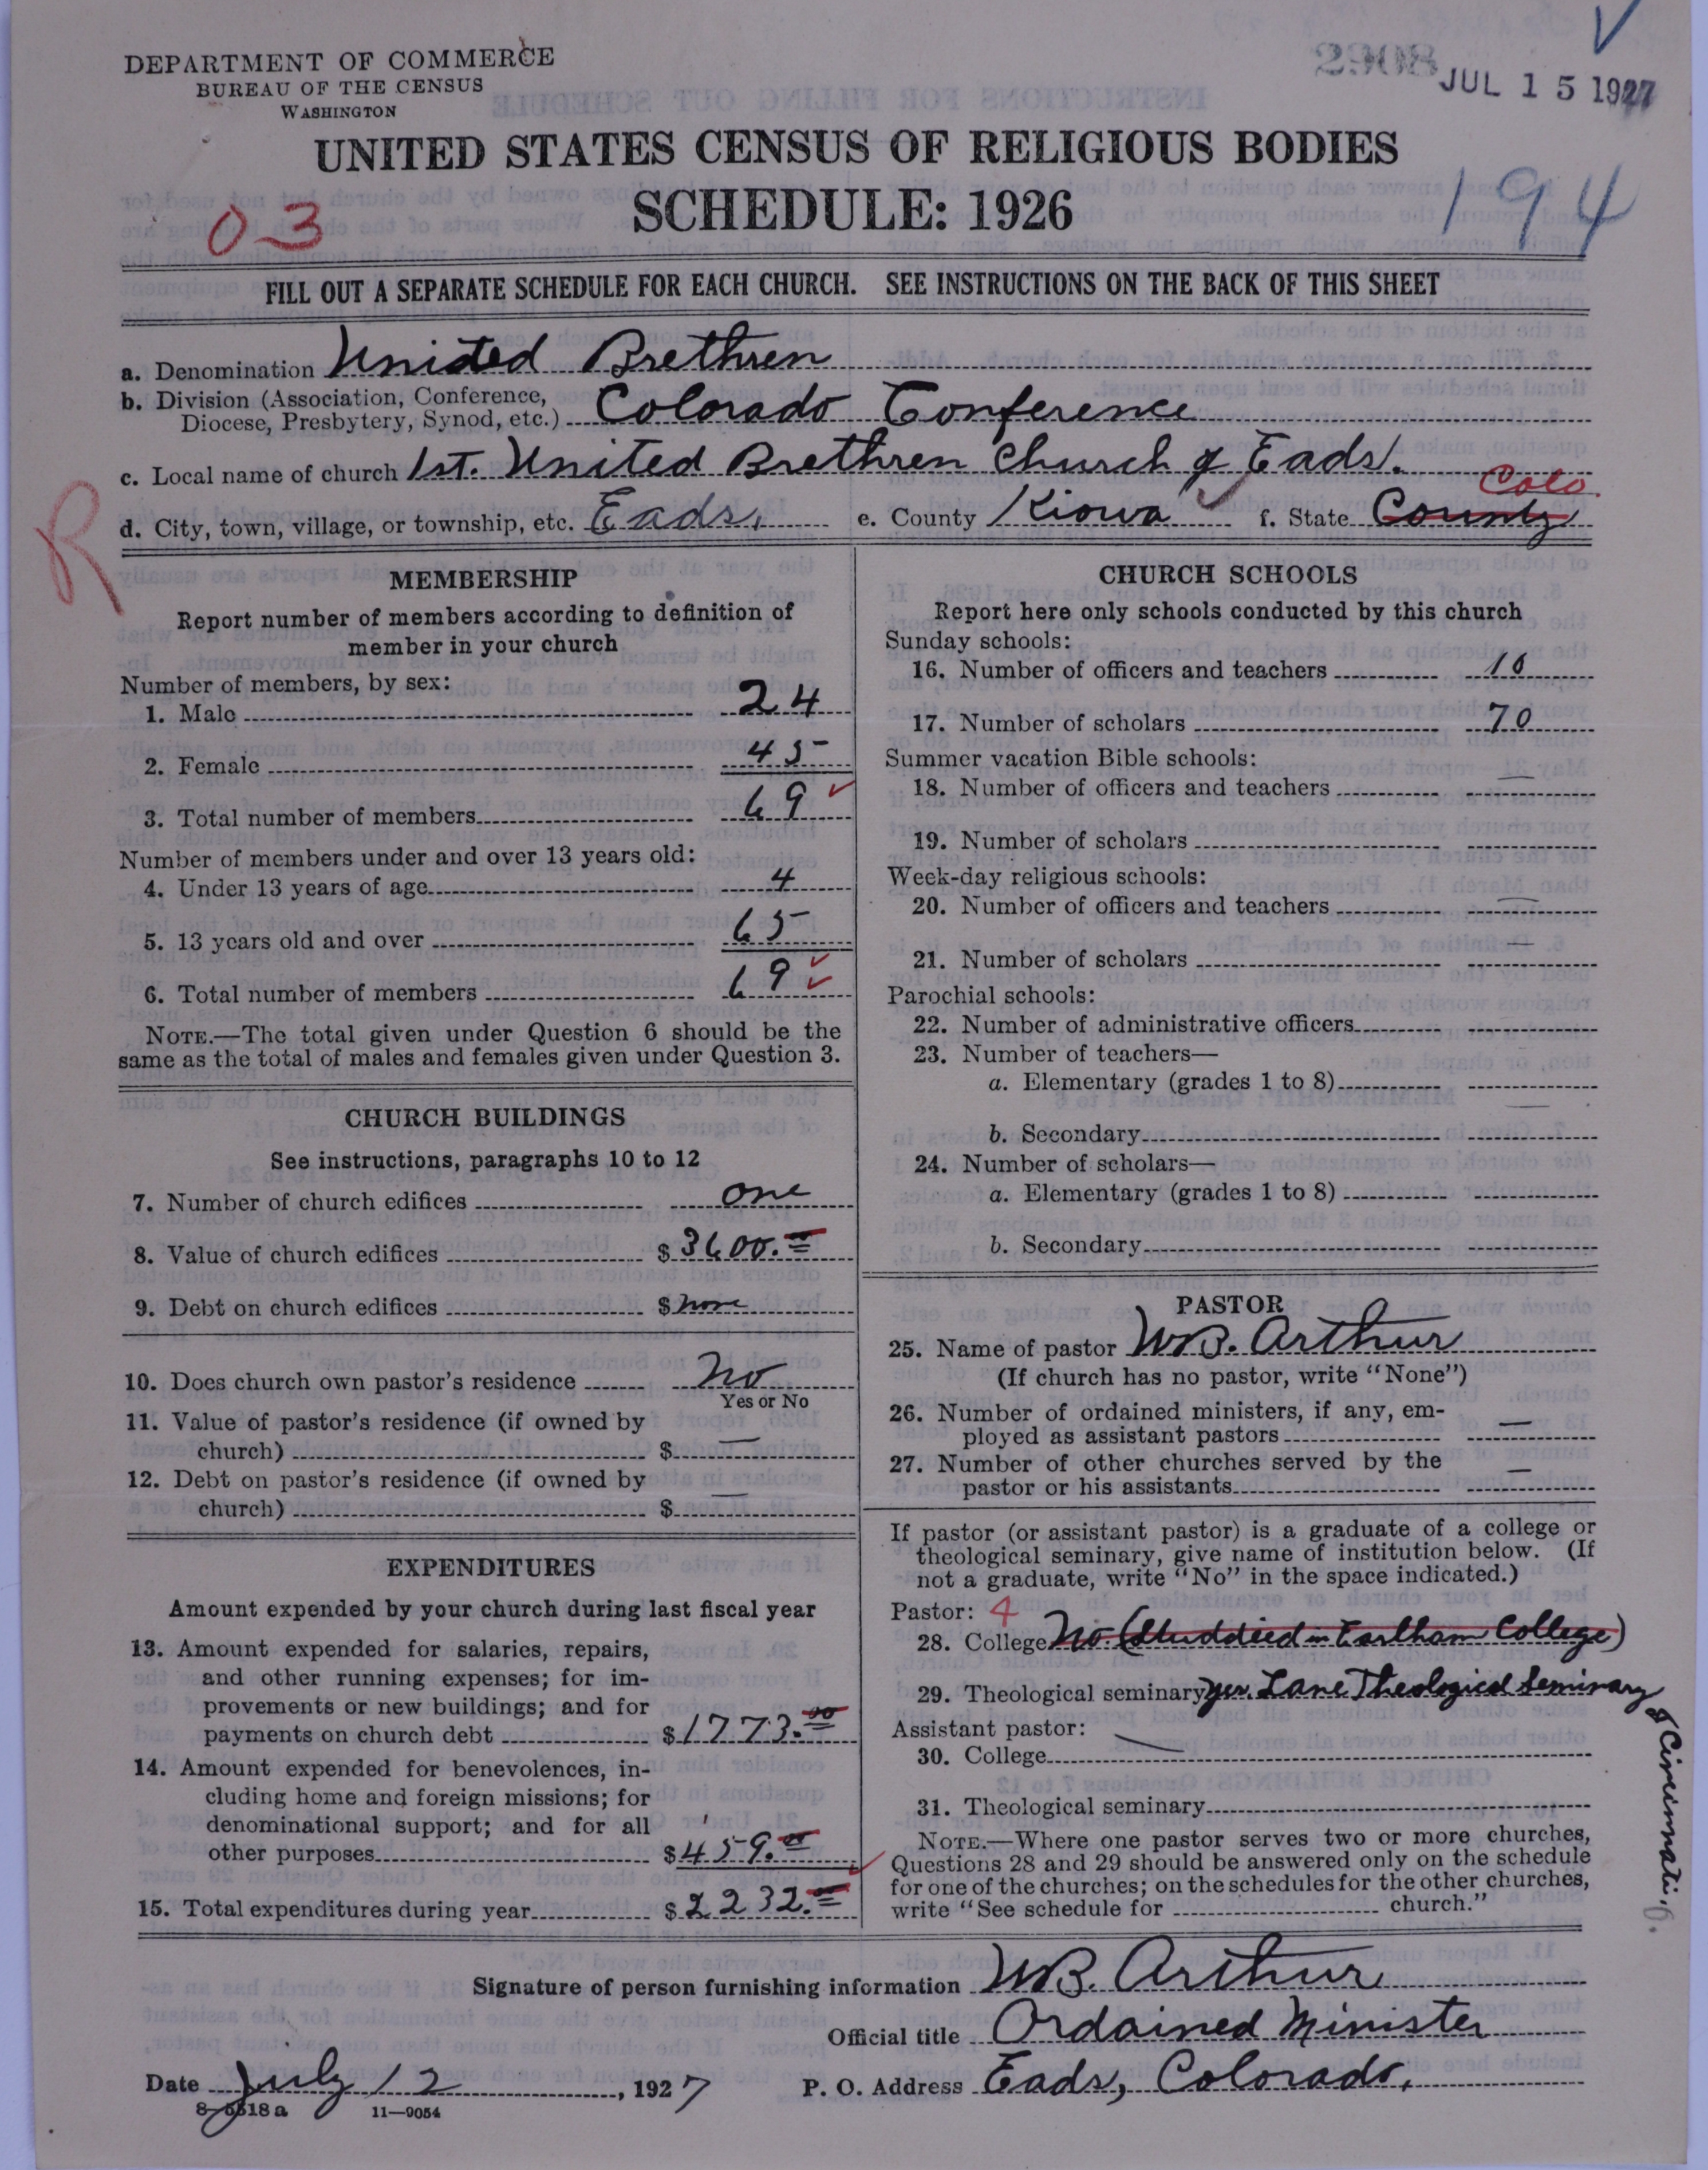 DEPARTMENT OF COMMERCE
BUREAU OF THE CENSUS
WASHINGTON
2908
JUL 15 1927
UNITED STATES CENSUS OF RELIGIOUS BODIES
SCHEDULE: 1926
03
194
FILL OUT A SEPARATE SCHEDULE FOR EACH CHURCH. SEE INSTRUCTIONS ON THE BACK OF THIS SHEET
a. Denomination United Brethren
b. Division (Association, Conference, Diocese, Presbytery, Synod, etc.) Colorado Conference
c. Local name of church 1st. United Brethren Church of Eads.
R
d. City, town, village, or township, etc. Eads, e. County Kiowa f. State County Colo.
MEMBERSHIP
Report number of members according to definition of
member in your church
Number of members, by sex:
1. Male 24
2. Female 45
3. Total number of members 69
Number of members under and over 13 years old:
4. Under 13 years of age 4
5. 13 years old and over 65
6. Total number of members 69
NOTE.—The total given under Question 6 should be the
same as the total of males and females given under Question 3.
CHURCH BUILDINGS
See instructions, paragraphs 10 to 12
7. Number of church edifices one
8. Value of church edifices $ 3600.00
9. Debt on church edifices $ none
10. Does church own pastor's residence No
Yes or No
11. Value of pastor's residence (if owned by
church) $ —
12. Debt on pastor's residence (if owned by
church) $ —
EXPENDITURES
Amount expended by your church during last fiscal year
13. Amount expended for salaries, repairs,
and other running expenses; for im-
provements or new buildings; and for
payments on church debt $ 1773.00
14. Amount expended for benevolences, in-
cluding home and foreign missions; for
denominational support; and for all
other purposes $ 459.00
15. Total expenditures during year $ 2232.00
CHURCH SCHOOLS
Report here only schools conducted by this church
Sunday schools:
16. Number of officers and teachers 10
17. Number of scholars 70
Summer vacation Bible schools:
18. Number of officers and teachers —
19. Number of scholars
Week-day religious schools:
20. Number of officers and teachers —
21. Number of scholars —
Parochial schools:
22. Number of administrative officers
23. Number of teachers—
a. Elementary (grades 1 to 8)
b. Secondary —
24. Number of scholars—
a. Elementary (grades 1 to 8)
b. Secondary
PASTOR
25. Name of pastor W.B. Arthur
(If church has no pastor, write "None")
26. Number of ordained ministers, if any, em-
ployed as assistant pastors —
27. Number of other churches served by the
pastor or his assistants —
If pastor (or assistant pastor) is a graduate of a college or
theological seminary, give name of institution below. (If
not a graduate, write "No" in the space indicated.)
Pastor: 4
28. College No (Studdied in Earlham College)
29. Theological seminary yes. Lane Theological Seminary
of Cincinnati, O.
Assistant pastor: —
30. College
31. Theological seminary
NOTE.—Where one pastor serves two or more churches,
Questions 28 and 29 should be answered only on the schedule
for one of the churches; on the schedules for the other churches,
write "See schedule for church."
Signature of person furnishing information W.B. Arthur
Official title Ordained Minister
Date July 12, 1927 P. O. Address Eads, Colorado.
8-5518a 11—9054